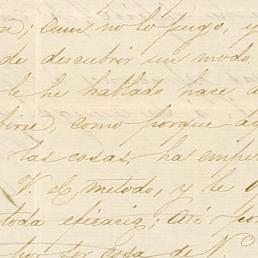 ; Aun no lo juzgo, y
de descubrir un modo,
le he hablado hace
como porque
las cosas, ha empe
V. el metodo, y le
toda eficacia; Así por
por ser cosa de N.